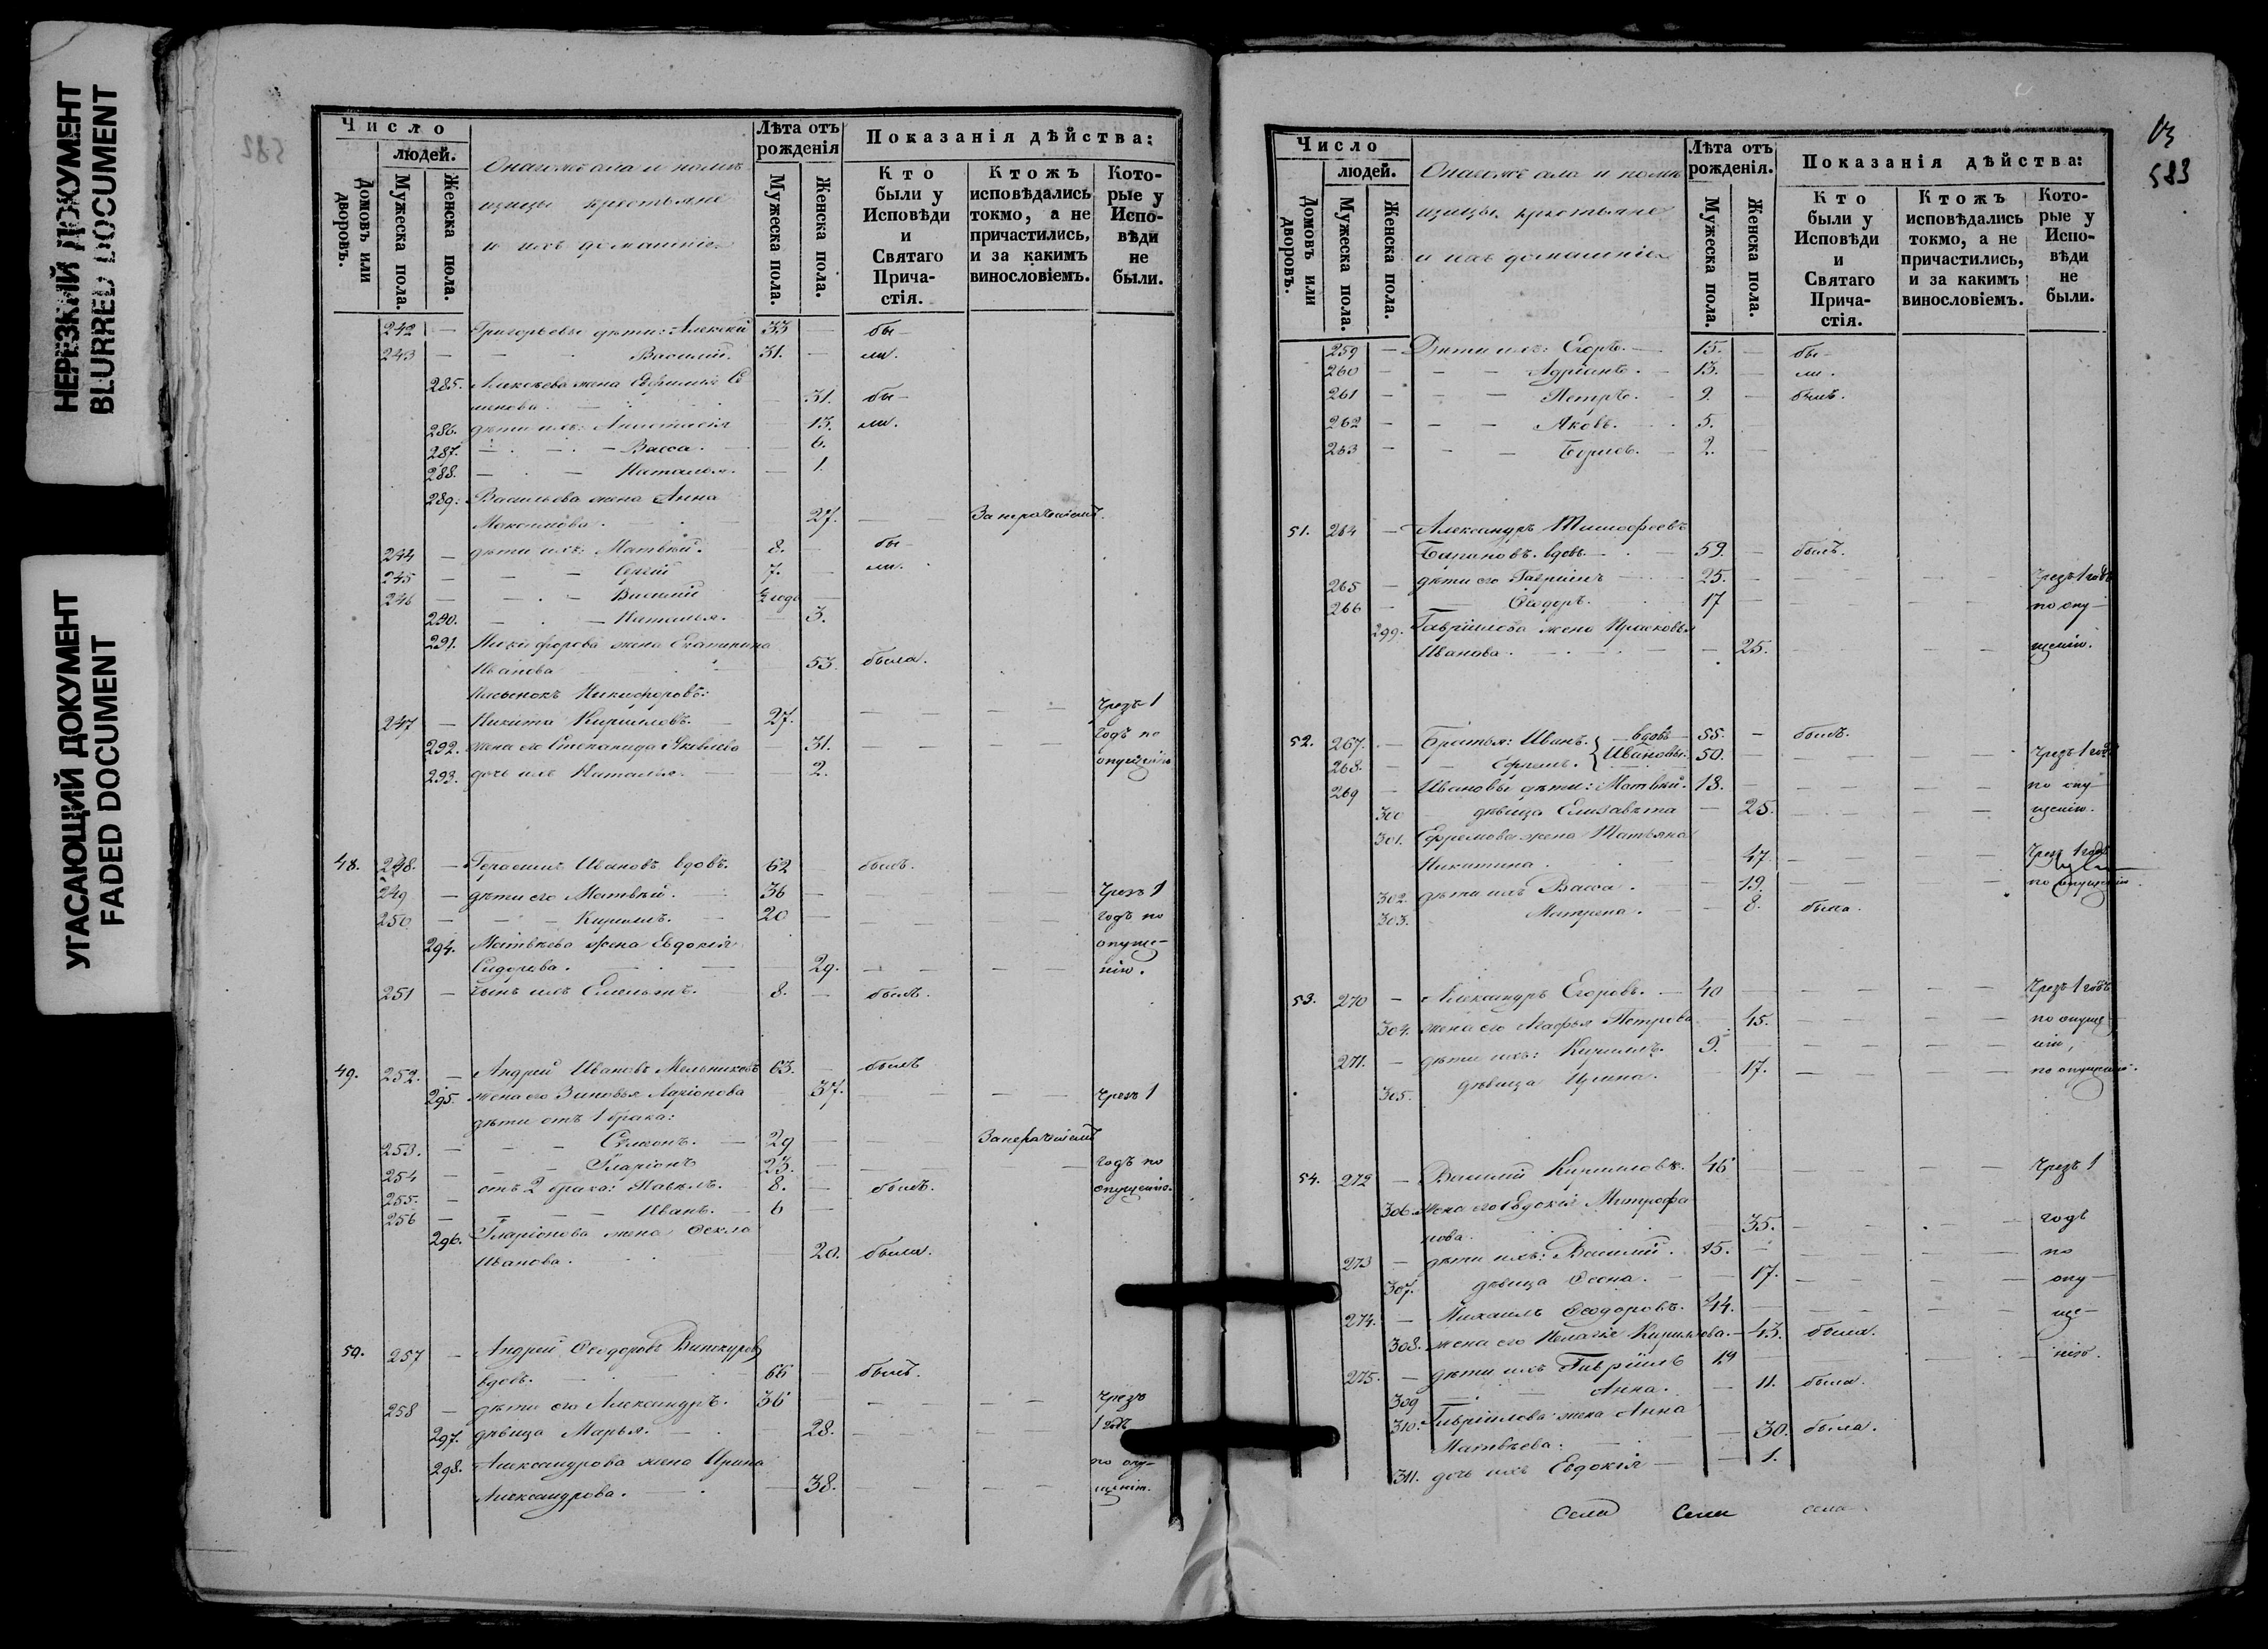 НЕРЕЗКИЙ ДОКУМЕНТ
BLURRED DOCUMENT
УГАСАЮЩИЙ ДОКУМЕНТ
FADED DOCUMENT
582
Число
людей.
Домовъ или дворовъ.
Мужеска пола.
Женска пола.
Онагожъ села и
крестьяне
и ихъ домашніе
Лѣта отъ рожденія
Мужеска пола.
Женска пола.
Показанія дѣйства:
Кто были у Исповѣди и Святаго Прича-стія.
Ктожъ исповѣдались токмо, а не причастились, и за какимъ винословіемъ.
Кото-рые у Испо-вѣди не были.
242 — Григорьевы дѣти: Алексѣй 33 — бы-
243 — — Василій. 31. — ли.
285. Алексѣева жена Евфимія Се
менова. — 31. бы-
286. дѣти ихъ: Анастасія — 13. ли.
287. — Васса. — 6.
288. — Наталья. — 1.
289. Васильева жена Анна
Максимова. 27. —
244 — дѣти ихъ: Матвѣй. 8. — бы-
245 — — Сергій 7. — ли.
246 — — Василій ½ года —
290. — Наталья. — 3.
291. Никифорова жена Екатерина
Иванова 53. была.
Пасынокъ Никифоровъ:
247 — Никита Кирилловъ. 27. — — чрезъ 1
292. жена его Степанида Яковлева — 31. — годъ по
293. дочь ихъ Наталья. — 2. опущенію
48. 248. — Герасимъ Ивановъ вдовъ. 62 былъ.
249 — дѣти его Матвѣй. 36 — — чрезъ 1
250 — — Кириллъ. 20 — — годъ по
294. Матвѣева жена Евдокія опуще-
Сидорова. — 29. — — нію.
251 — сынъ ихъ Емельянъ. 8. — былъ.
49. 252. — Андрей Ивановъ Мельниковъ 63. — былъ
295. жена его Зиновья Ларіонова — 37. — — чрезъ 1
дѣти отъ 1 брака:
253. — — Симеонъ. — 29 —
254 — — Иларіонъ 23. — — годъ по
255. — отъ 2 брака: Павелъ. 8. — былъ. опущенію.
256 — — Иванъ. 6 —
296. Иларіонова жена Ѳекла
Иванова. 20. была.
50. 257 — Андрей Ѳеодоровъ Винокуровъ
вдовъ. 66 — былъ.
258 — дѣти его Александръ. 36 — — чрезъ
297. дѣвица Марья. — 28. — — 1 годъ
298. Александрова жена Ирина по опу-
Александрова. — 38. — — щенію.
583
Число
людей.
Домовъ или дворовъ.
Мужеска пола.
Женска пола.
Онагожъ села и
крестьяне
и ихъ домашніе
Лѣта отъ рожденія.
Мужеска пола.
Женска пола.
Показанія дѣйства:
Кто были у Исповѣди и Святаго Прича-стія.
Ктожъ исповѣдались токмо, а не причастились, и за какимъ винословіемъ.
Кото-рые у Испо-вѣди не были.
259 — Дѣти ихъ: Егоръ. — 15. — бы-
260 — — Адріанъ. — 13. — ли.
261 — — Петръ. — 9. — былъ.
262 — — Яковъ. — 5.
263 — — Борисъ. — 2.
51. 264 — Александръ Тимофеевъ
вдовъ. — 59. — былъ.
265 — дѣти его Гавріилъ 25. — — чрезъ 1 годъ
266 — Ѳеодоръ. 17 — — по опу-
299. Гавріилова жена Прасковья
Иванова. — 25. — — щенію.
52. 267. — Братья: Иванъ. — вдовъ — 55. — былъ.
268. — Ефремъ. Ивановы. 50. — — чрезъ 1 годъ
269 — Ивановы дѣти: Матвѣй. 18. — — по опу
300 дѣвица Елизавета — 25. — — щенію.
301. Ефремова жена Татьяна
Никитина. — 47. — — чрезъ 1 годъ
302. дѣти ихъ Васса. — 19. — — по опущенію.
303. Матрена. — 8. была.
53. 270 — Александръ Егоровъ. — 40 — — чрезъ 1 годъ
304. жена его Агафья Петрова 45. — — по опуще
271. — дѣти ихъ: Кириллъ. 9. — — нію,
305. дѣвица Ирина. 17. — — по опущенію.
54. 272 — Василій Кирилловъ. 46 — — чрезъ 1
306. жена его Евдокія Митрофа
нова. 35. — — годъ
273 — дѣти ихъ: Василій. 15. — — по
307. дѣвица — 17. — — опу-
274. — Михаилъ Ѳеодоровъ. 44. — — ще-
308. жена его Пелагія Кириллова. — 43. была.
275. — дѣти ихъ Гавріилъ 19 — — нію.
309 — Анна. — 11. была.
310. Гавріилова жена Анна
Матвѣева. — 30. была.
311. дочь ихъ Евдокія — 1.
Села Села села